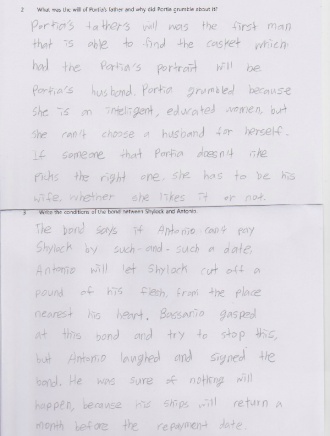 2 What was the will of Portia's father and why did Portia grumble about it?
Portia's father's will was the first man
that is able to find the casket which
had the Portia's portrait will be
Portia's husband. Portia grumbled because
she is an inteligent, educated women, but
she can't choose a husband for herself.
If someone that Portia doesn't like
picks the right one, she has to be his
wife, whether she likes it or not.
3 Write the conditions of the bond between Shylock and Antonio.
The bond says if Antonio can't pay
Shylock by such-and-such a date,
Antonio will let Shylock cut off a
pound of his flesh, from the place
nearest his heart. Bassanio gasped
at this bond and try to stop this,
but Antonio laughed and signed the
bond. He was sure of nothing will
happen, because his ships will return a
month before the repayment date.